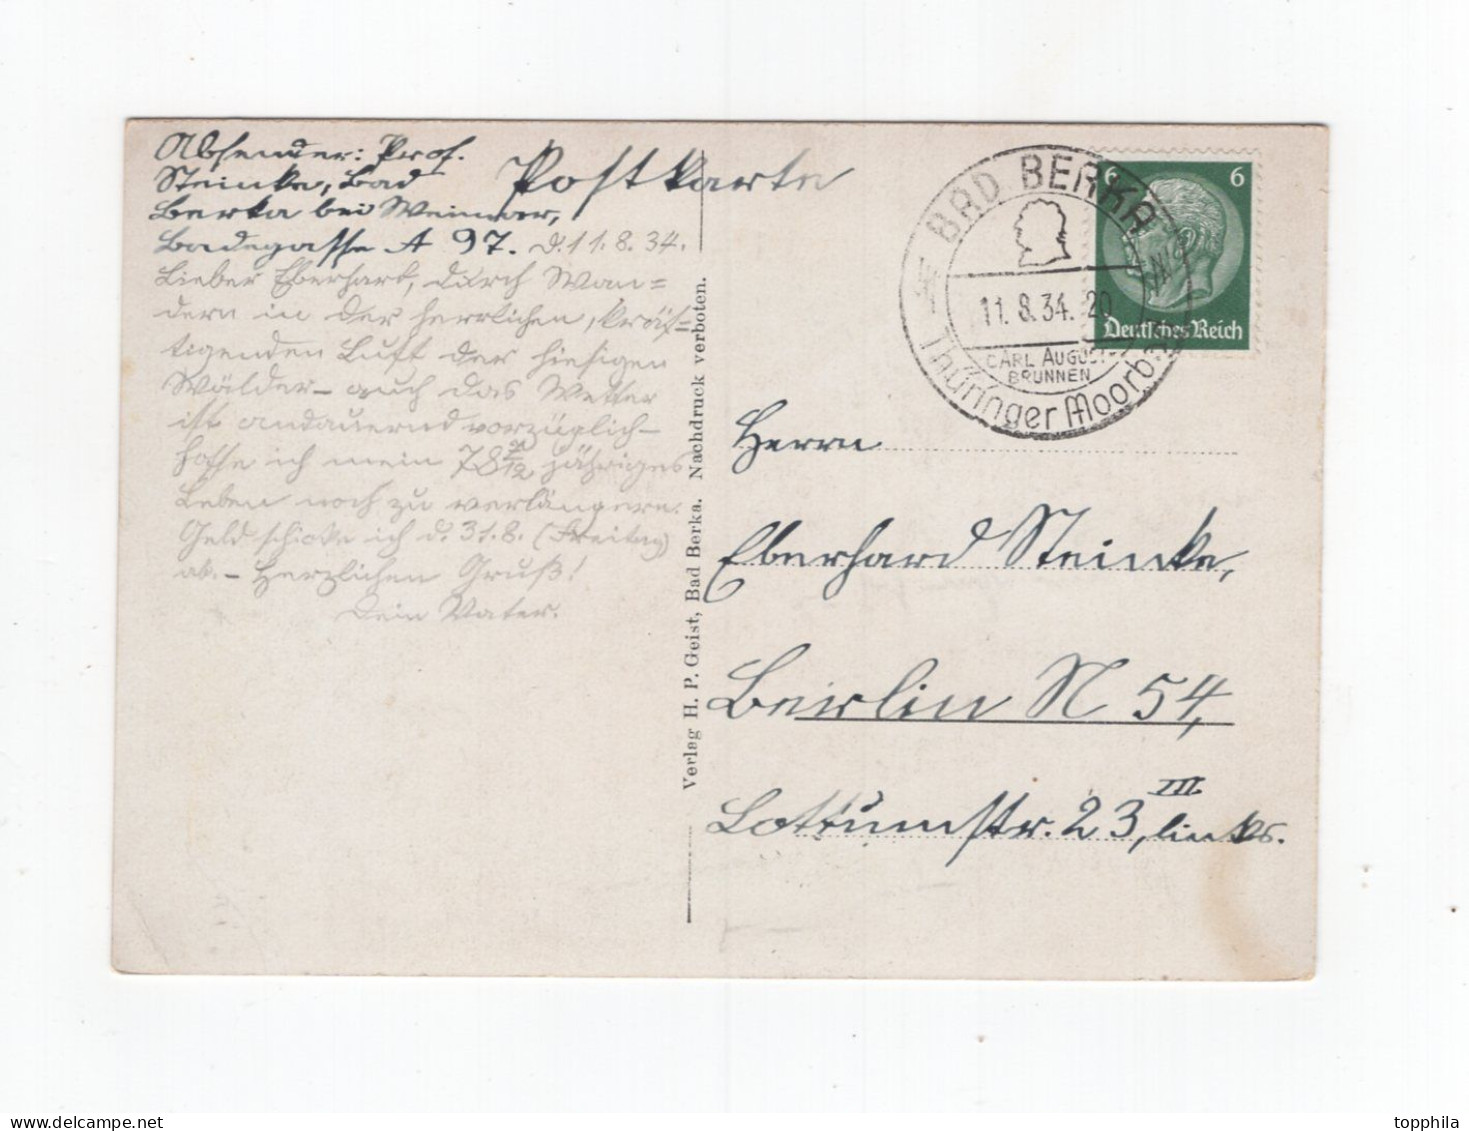 Absender: Prof.
Steincke, Bad
Berka bei Weimar,
Badegasse A 97. d. 11. 8. 34.
Lieber Eberhart, durch Wan=
dern in der herrlichen, kräf=
tigenden Luft der hiesigen
Wälder – auch das Wetter
ist andauernd vorzüglich –
hoffe ich mein 78 /12 jähriges
Leben noch zu verlängern.
Geld schicke ich d. 31. 8. (Freitag)
ab. – Herzlichen Gruß!
Dein Vater.
Postkarte
Verlag H. P. Geist, Bad Berka. Nachdruck verboten.
BAD BERKA
11. 8. 34. 20
CARL AUGUST
BRUNNEN
Thüringer Moorb
6 6
Deutsches Reich
Herrn
Eberhard Steincke,
Berlin N 54,
Lottumstr. 23, III links.
topphila